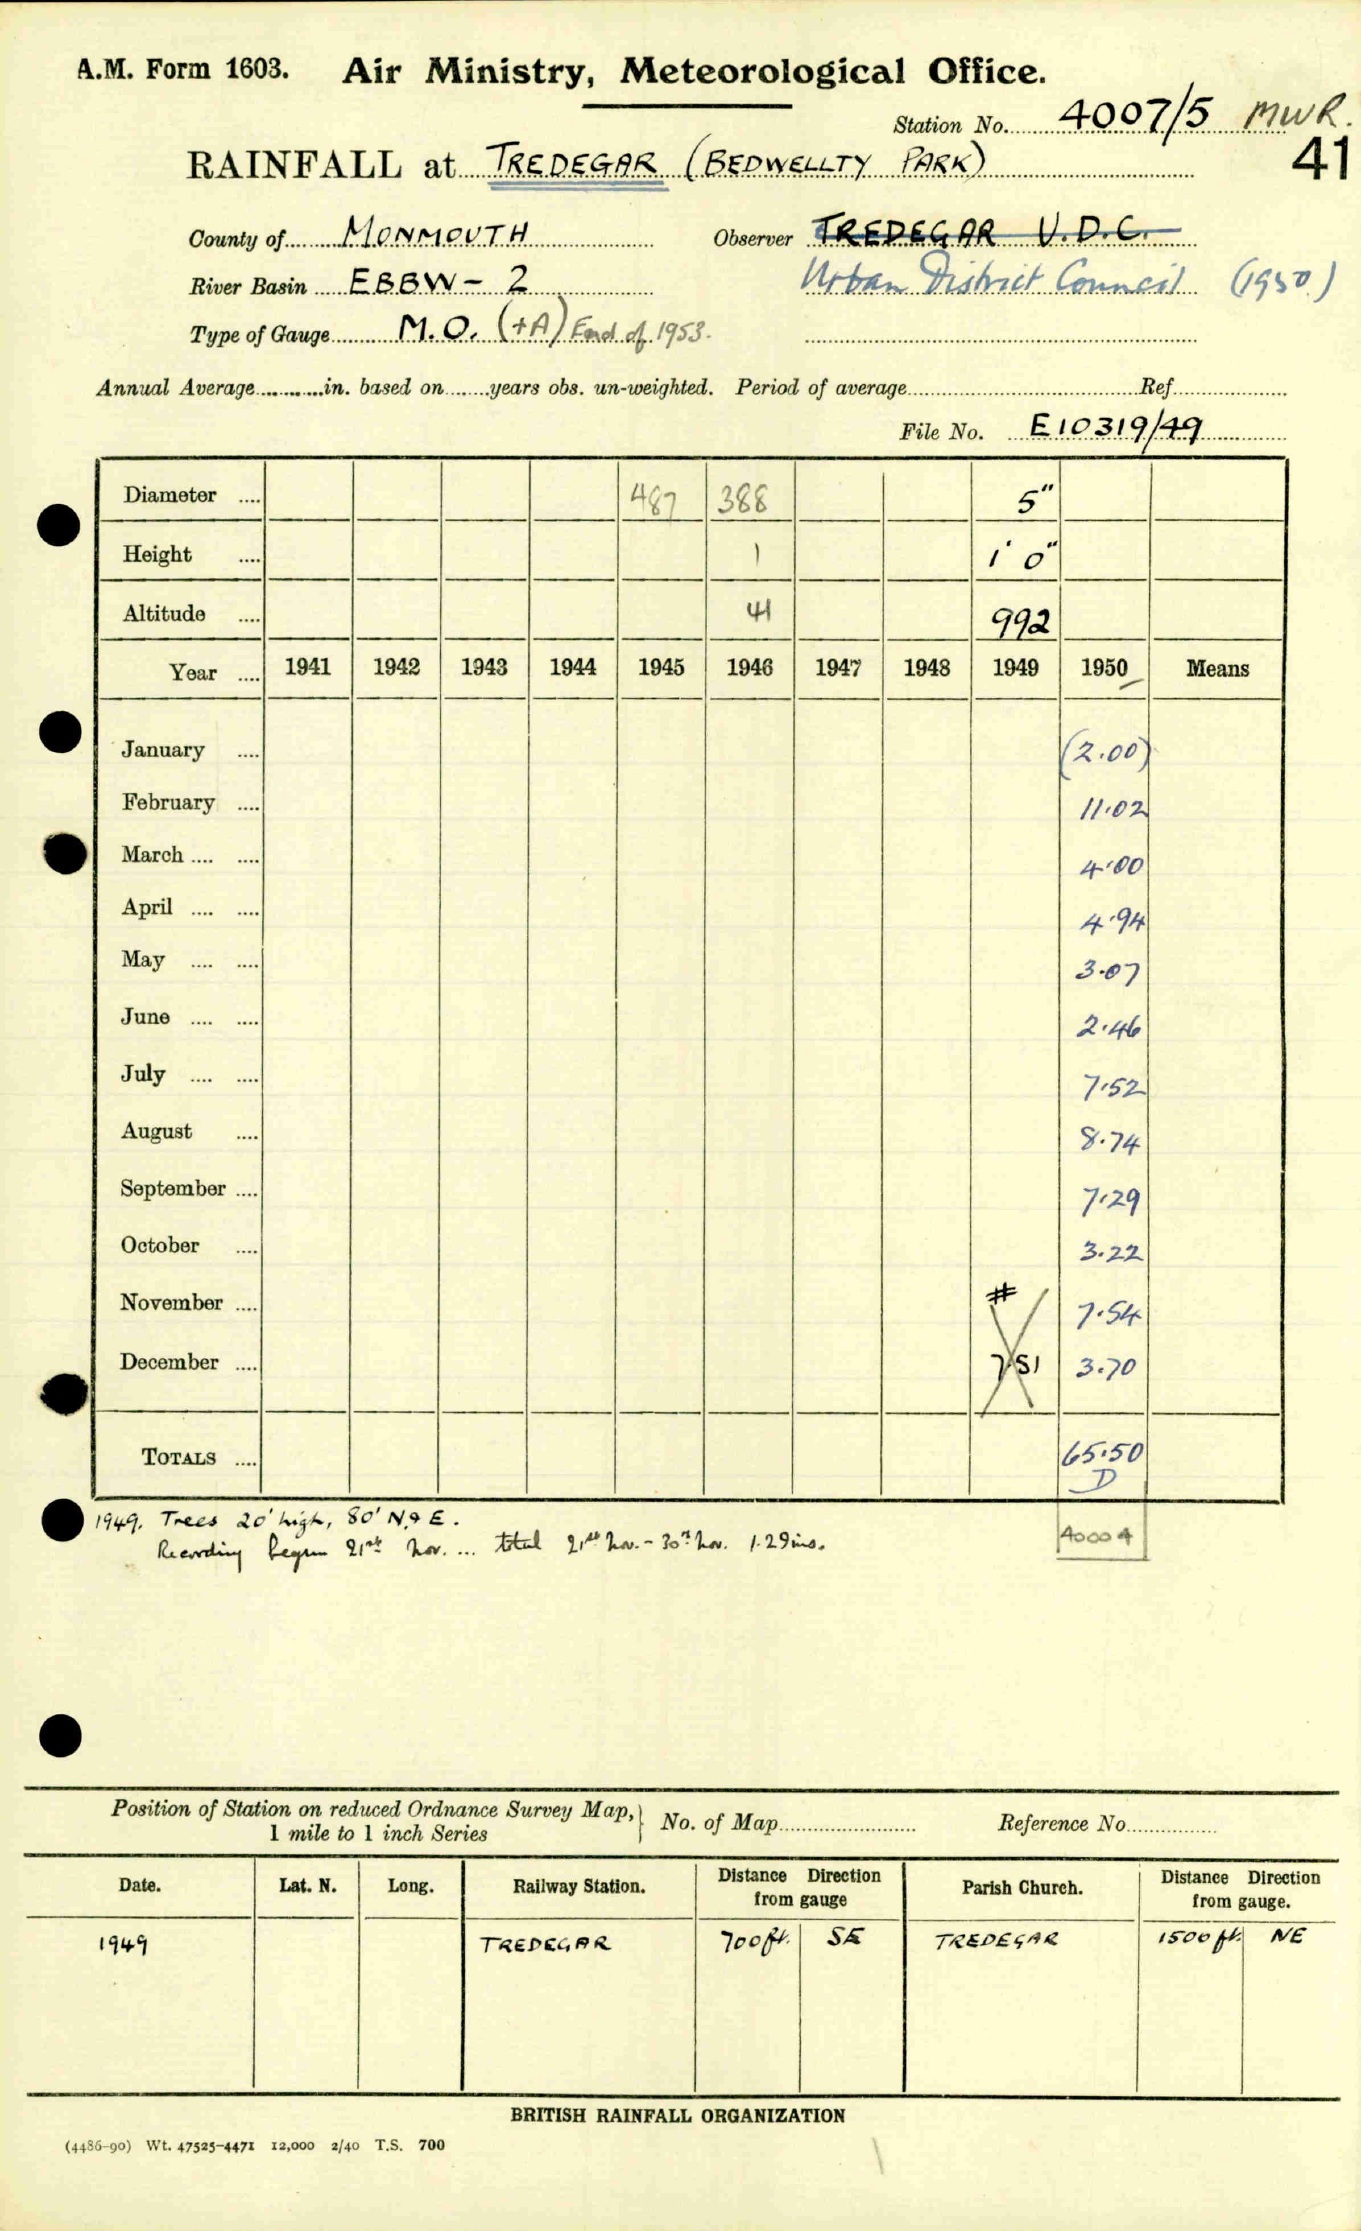 A.M. Form 1603. Air Ministry, Meteorological Office.
Station No. 4007/5 MWR.
41
RAINFALL at TREDEGAR (BEDWELLTY PARK)
County of MONMOUTH Observer TREDEGAR U.D.C.
River Basin EBBW - 2 Urban District Council (1950)
Type of Gauge M.O. (+A) End of 1953.
Annual Average in. based on years obs. un-weighted. Period of average Ref.
File No. E10319/49
Diameter 487 388 5"
Height 1 1' 0"
Altitude 41 992
Year 1941 1942 1943 1944 1945 1946 1947 1948 1949 1950 Means
January (2.00)
February 11.02
March 4.00
April 4.94
May 3.07
June 2.46
July 7.52
August 8.74
September 7.29
October 3.22
November # 7.54
December 7.51 3.70
TOTALS 65.50
D
1949. Trees 20' high, 80' N. & E.
Recording began 21st Nov. ... total 21st Nov. - 30th Nov. 1.29 ins.
40004
Position of Station on reduced Ordnance Survey Map, 1 mile to 1 inch Series } No. of Map Reference No.
Date. Lat. N. Long. Railway Station. Distance Direction from gauge Parish Church. Distance Direction from gauge.
1949 TREDEGAR 700 ft. SE TREDEGAR 1500 ft. NE
BRITISH RAINFALL ORGANIZATION
(4486-90) Wt. 47525-4471 12,000 2/40 T.S. 700